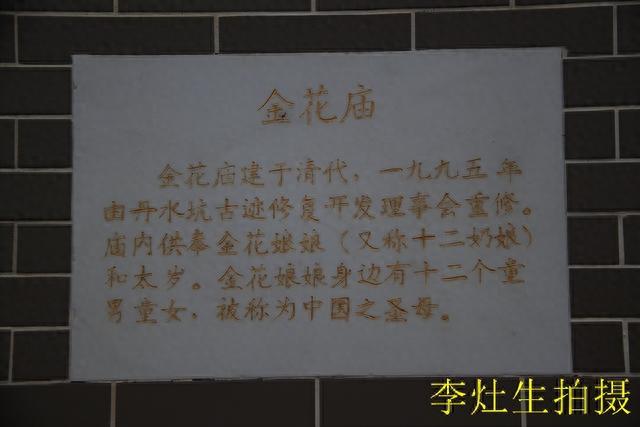 金花庙
金花庙建于清代，一九九五年
由丹水坑古迹修复开发理事会重修。
庙内供奉金花娘娘（又称十二奶娘）
和太岁。金花娘娘身边有十二个童
男童女，被称为中国之圣母。
李灶生拍摄